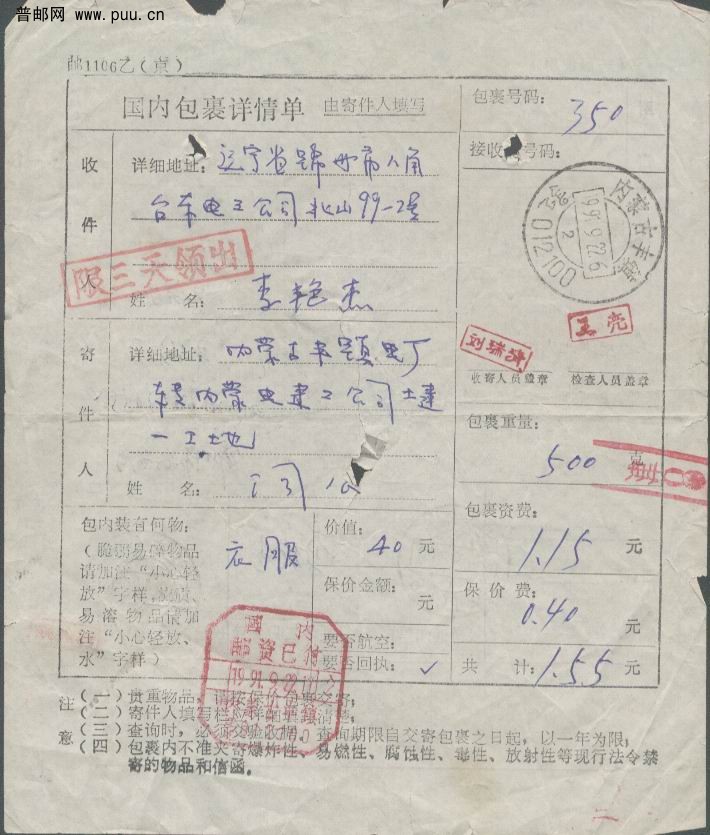 普邮网
www.puu.cn
邮1106乙（京）
国内包裹详情单 由寄件人填写
包裹号码：
350
接收 号码：
收件人
详细地址：辽宁省 市八角
台东电工公司北山99-2号
限三天领出
姓 名：李艳杰
内蒙古丰镇
1991.9.22.6
012100
寄件人
详细地址：内蒙古丰镇电厂
内蒙电建工公司土建
一工土地
姓 名：
刘瑞清
王亮
收寄人员盖章
检查人员盖章
包裹重量：
500 克
包裹资费：
1.15 元
保价费：
0.40 元
共 计：1.55 元
包内装有何物：
（脆弱易碎物品
请加注“小心轻
放”字样，
易溶物品请加
注“小心轻放、
水”字样）
衣服
价值：
40 元
保价金额：
元
要否航空：
要否回执：✓
国内
邮资已付
1991.9.22
注意
（一）贵重物品，请按保价包裹交寄；
（二）寄件人填写栏 清楚；
（三）查询时，必须交验收据。查询期限自交寄包裹之日起，以一年为限；
（四）包裹内不准夹寄爆炸性、易燃性、腐蚀性、毒性、放射性等现行法令禁
寄的物品和信函。